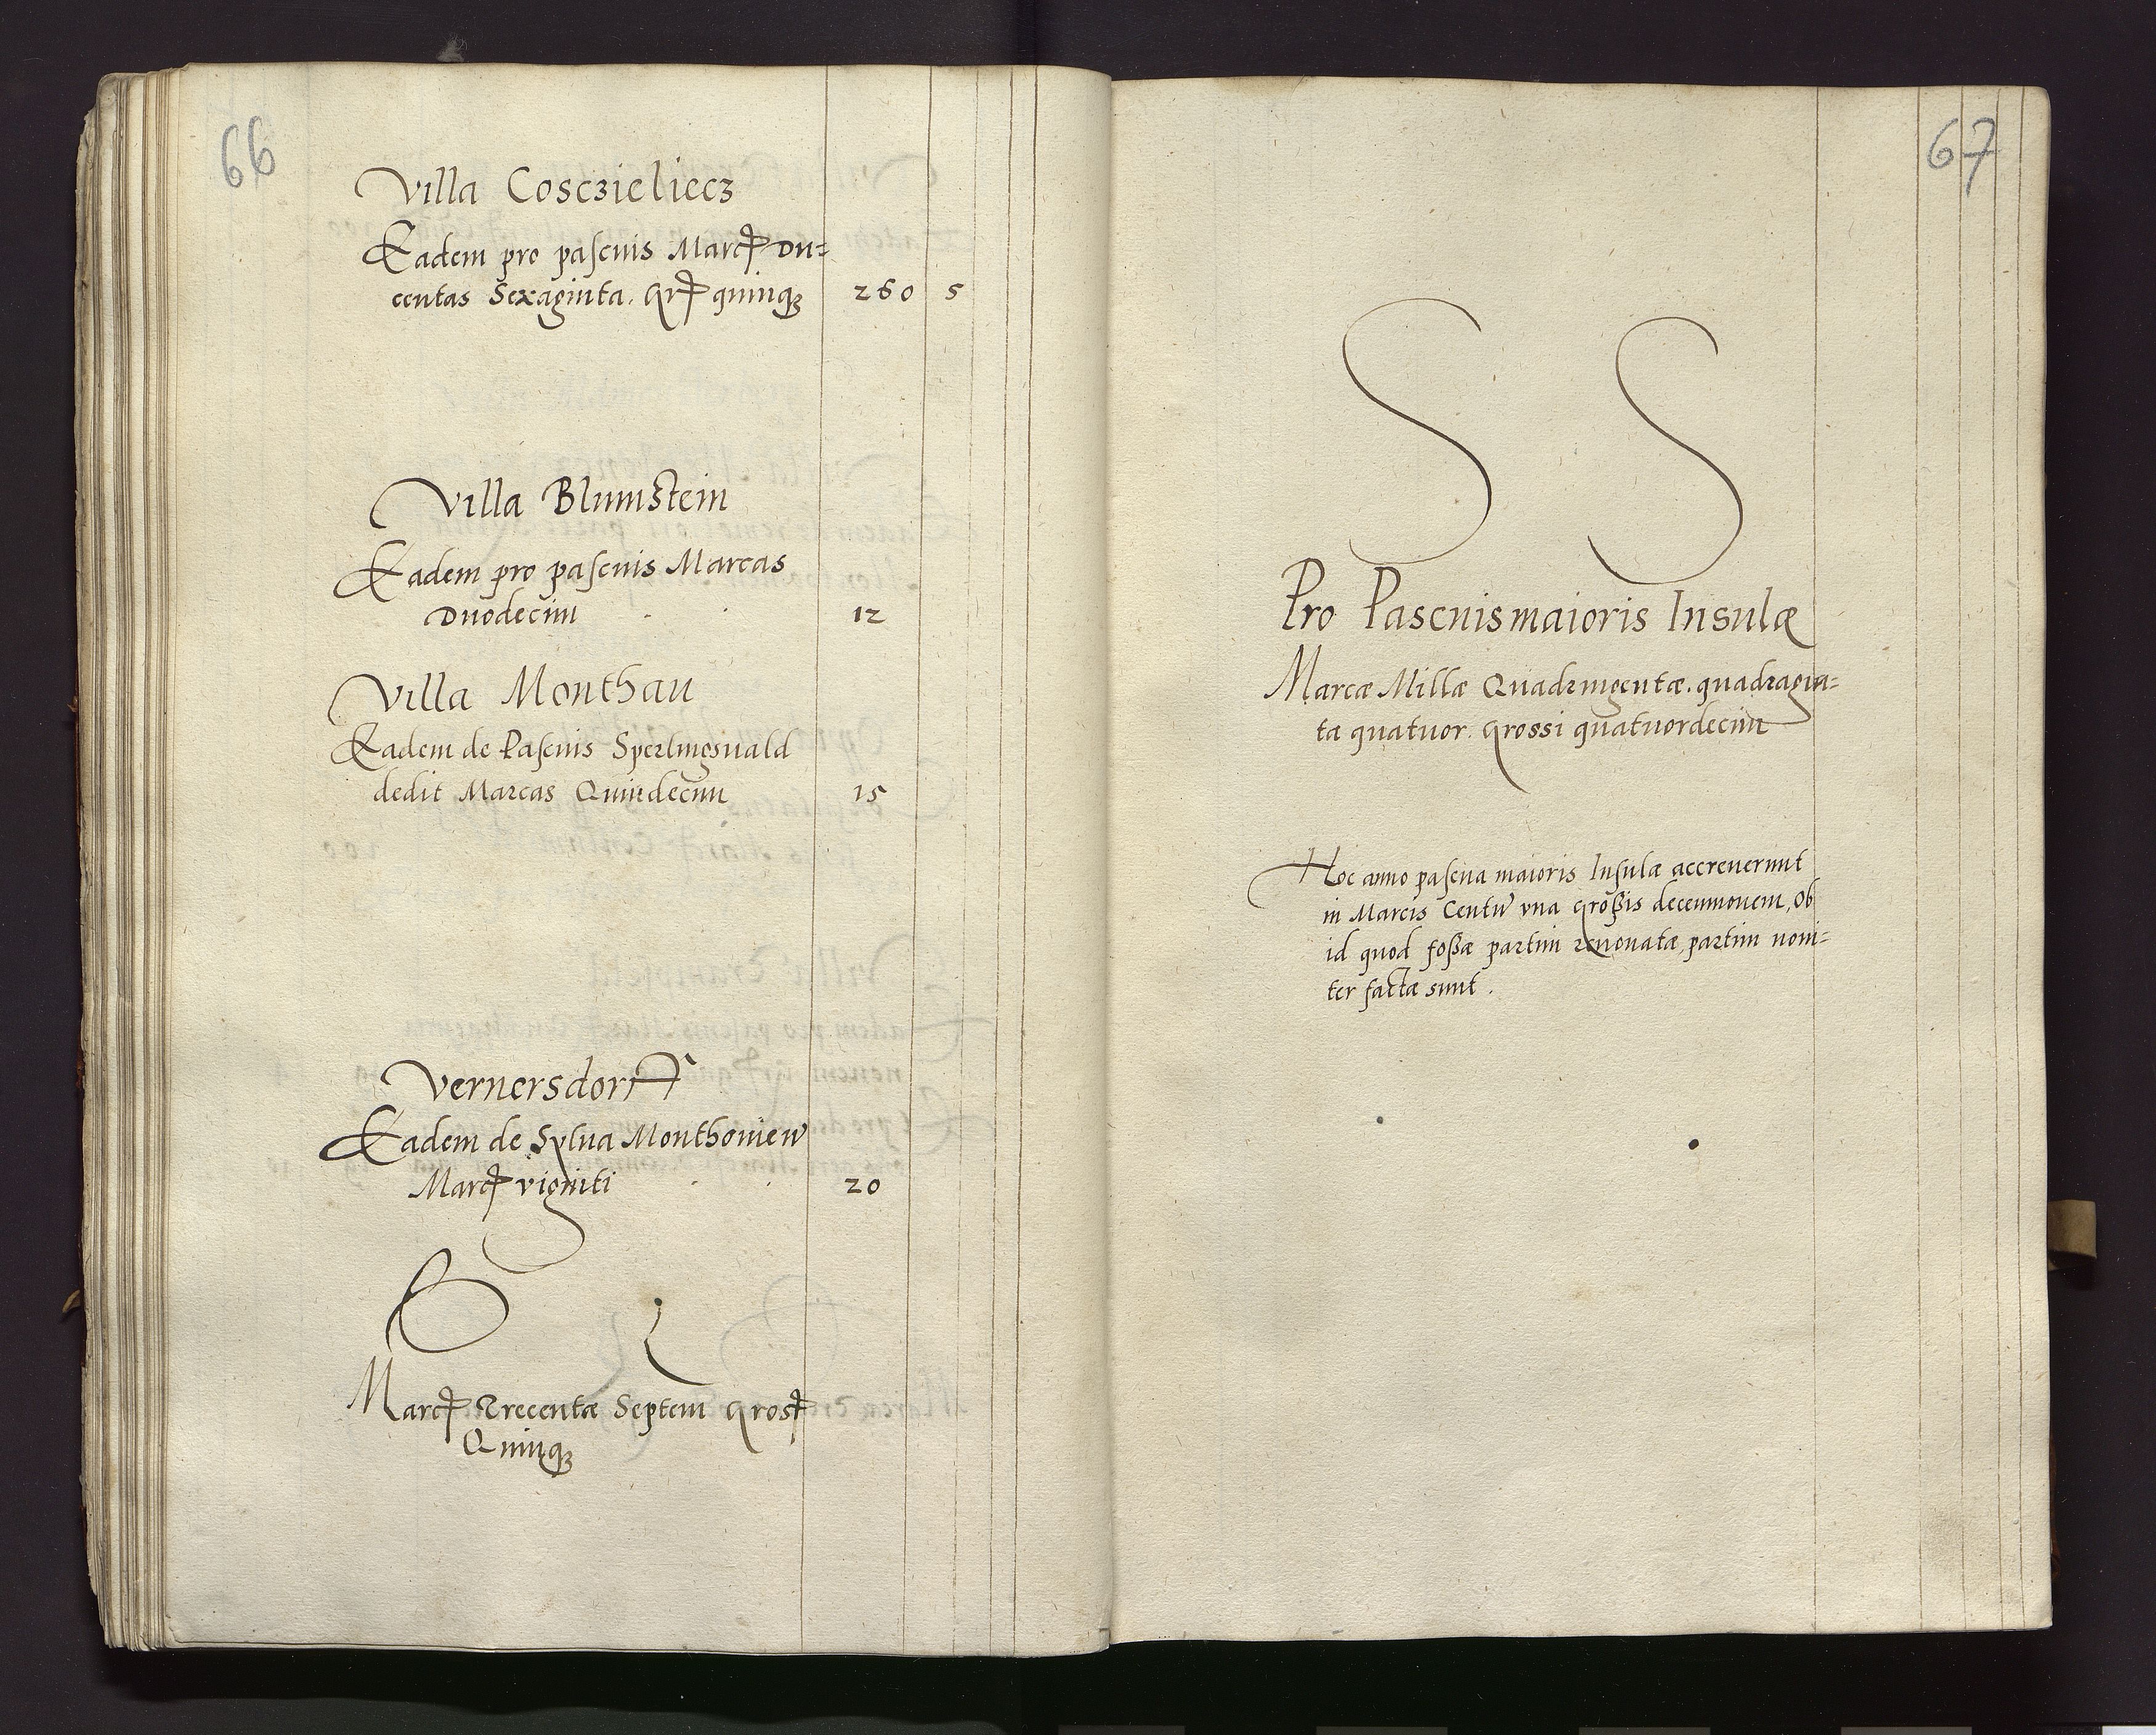 66
Villa Cosczieliecz
Eadem pro pascuis Marcꝭ Du=
centas Sexaginta. Grꝭ quinqꝫ 260 5
Villa Blumstein
Eadem pro pascuis Marcas
Duodecim 12
Villa Monthau
Eadem de Pascuis Sperlingsuald
dedit Marcas Quindecim 15
Vernersdorff
Eadem de Sylua Monthoniew
Marcꝭ viginti 20
Marcꝭ Trecentæ Septem Grosꝭ
Quinqꝫ
67
S S
Pro Pascuis maioris Insulæ
Marcæ Millæ Quadringentæ. quadragin=
ta quatuor. Grossi quatuordecim
Hoc anno pascua maioris Insulæ accreuerunt
in Marcis Centū vna Großis decemnouem, Ob
id quod foßæ partim renouatæ, partim noui=
ter factæ sunt.